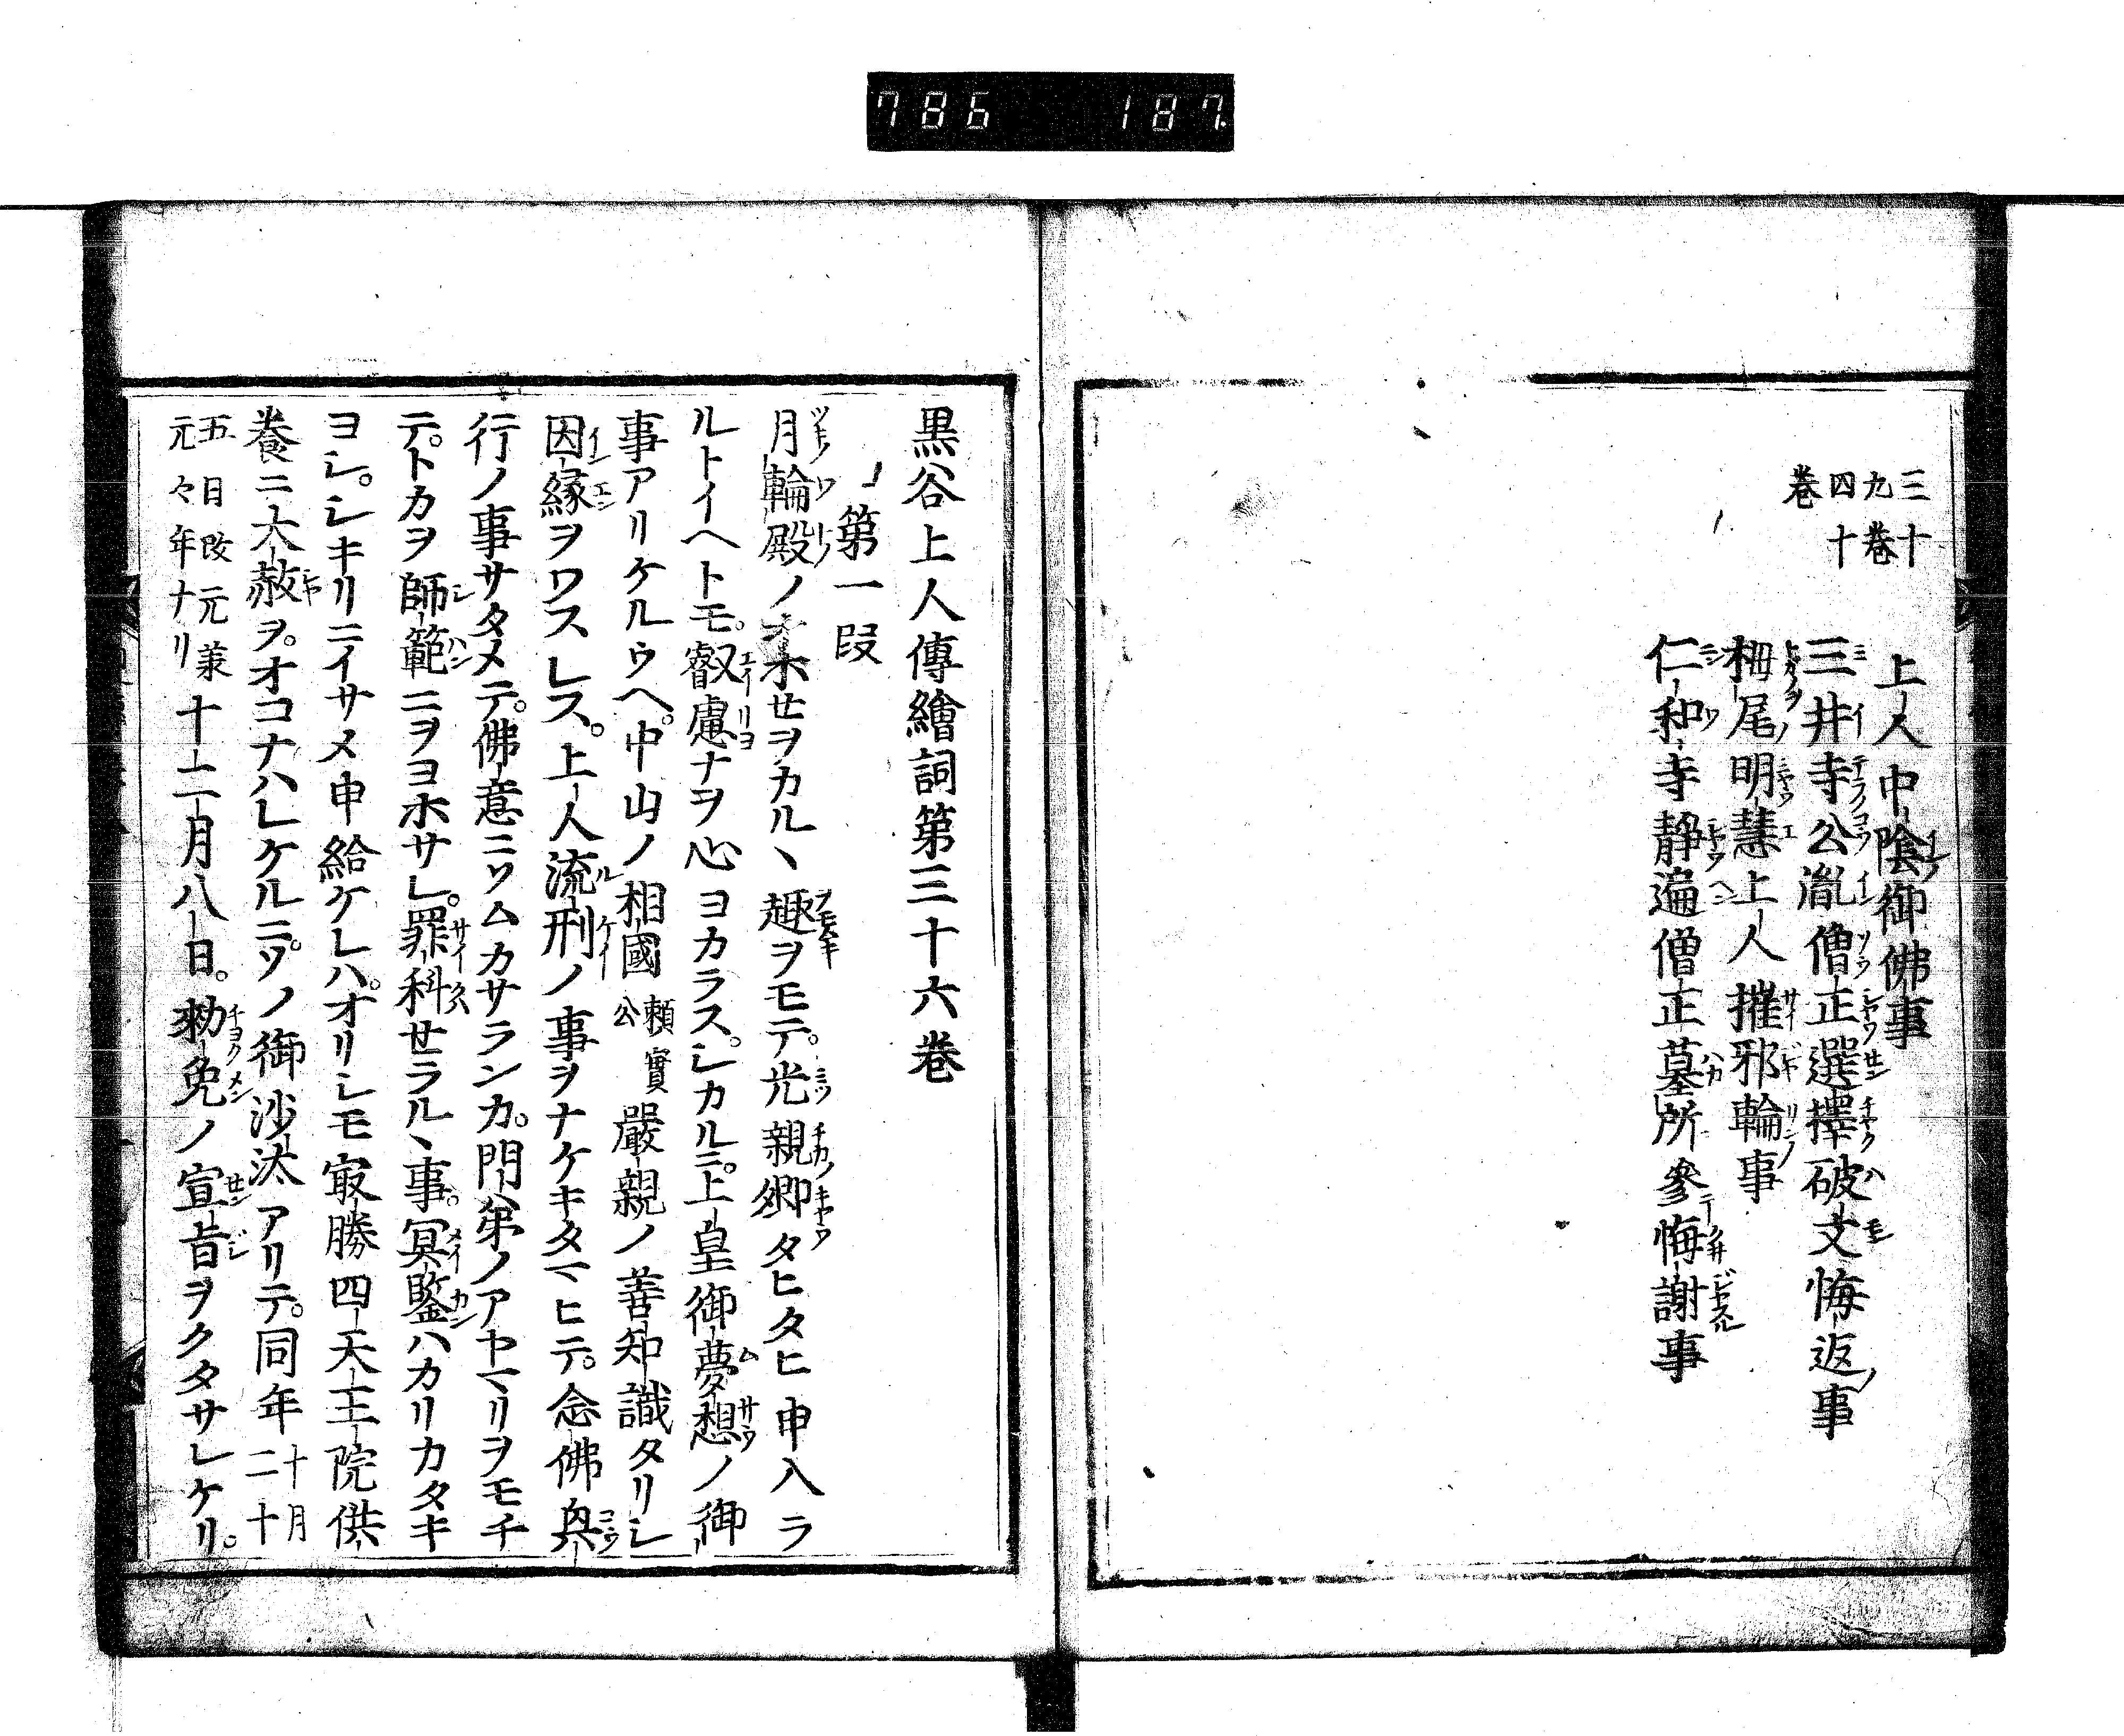 786 187
三十九巻 上人中陰御佛事
四十巻 三井寺公胤僧正選擇破文悔返事
栂尾明慧上人摧邪輪事
仁和寺靜遍僧正墓所參悔謝事
黒谷上人傳繪詞第三十六巻
第一段
月輪殿ノオホセヲカルヽ趣ヲモテ。光親卿タヒタヒ申入ラ
ルトイヘトモ。叡慮ナヲ心ヨカラス。シカルニ。上皇御夢想ノ御
事アリケルウヘ。中山ノ相國頼實公嚴親ノ善知識タリシ
因縁ヲワスレス。上人流刑ノ事ヲナケキタマヒテ。念佛興
行ノ事サタメテ。佛意ニソムカサランカ。門弟ノアヤマリヲモチ
テ。トカヲ師範ニヲヨホサレ。罪科セラルヽ事。冥鑒ハカリカタキ
ヨシ。シキリニイサメ申給ケレハ。オリシモ㝡勝四天王院供
養ニ大赦ヲ。オコナハレケルニ。ソノ御沙汰アリテ。同年十月二十
五日改元兼元々年ナリ十二月八日。勅免ノ宣旨ヲクタサレケリ。